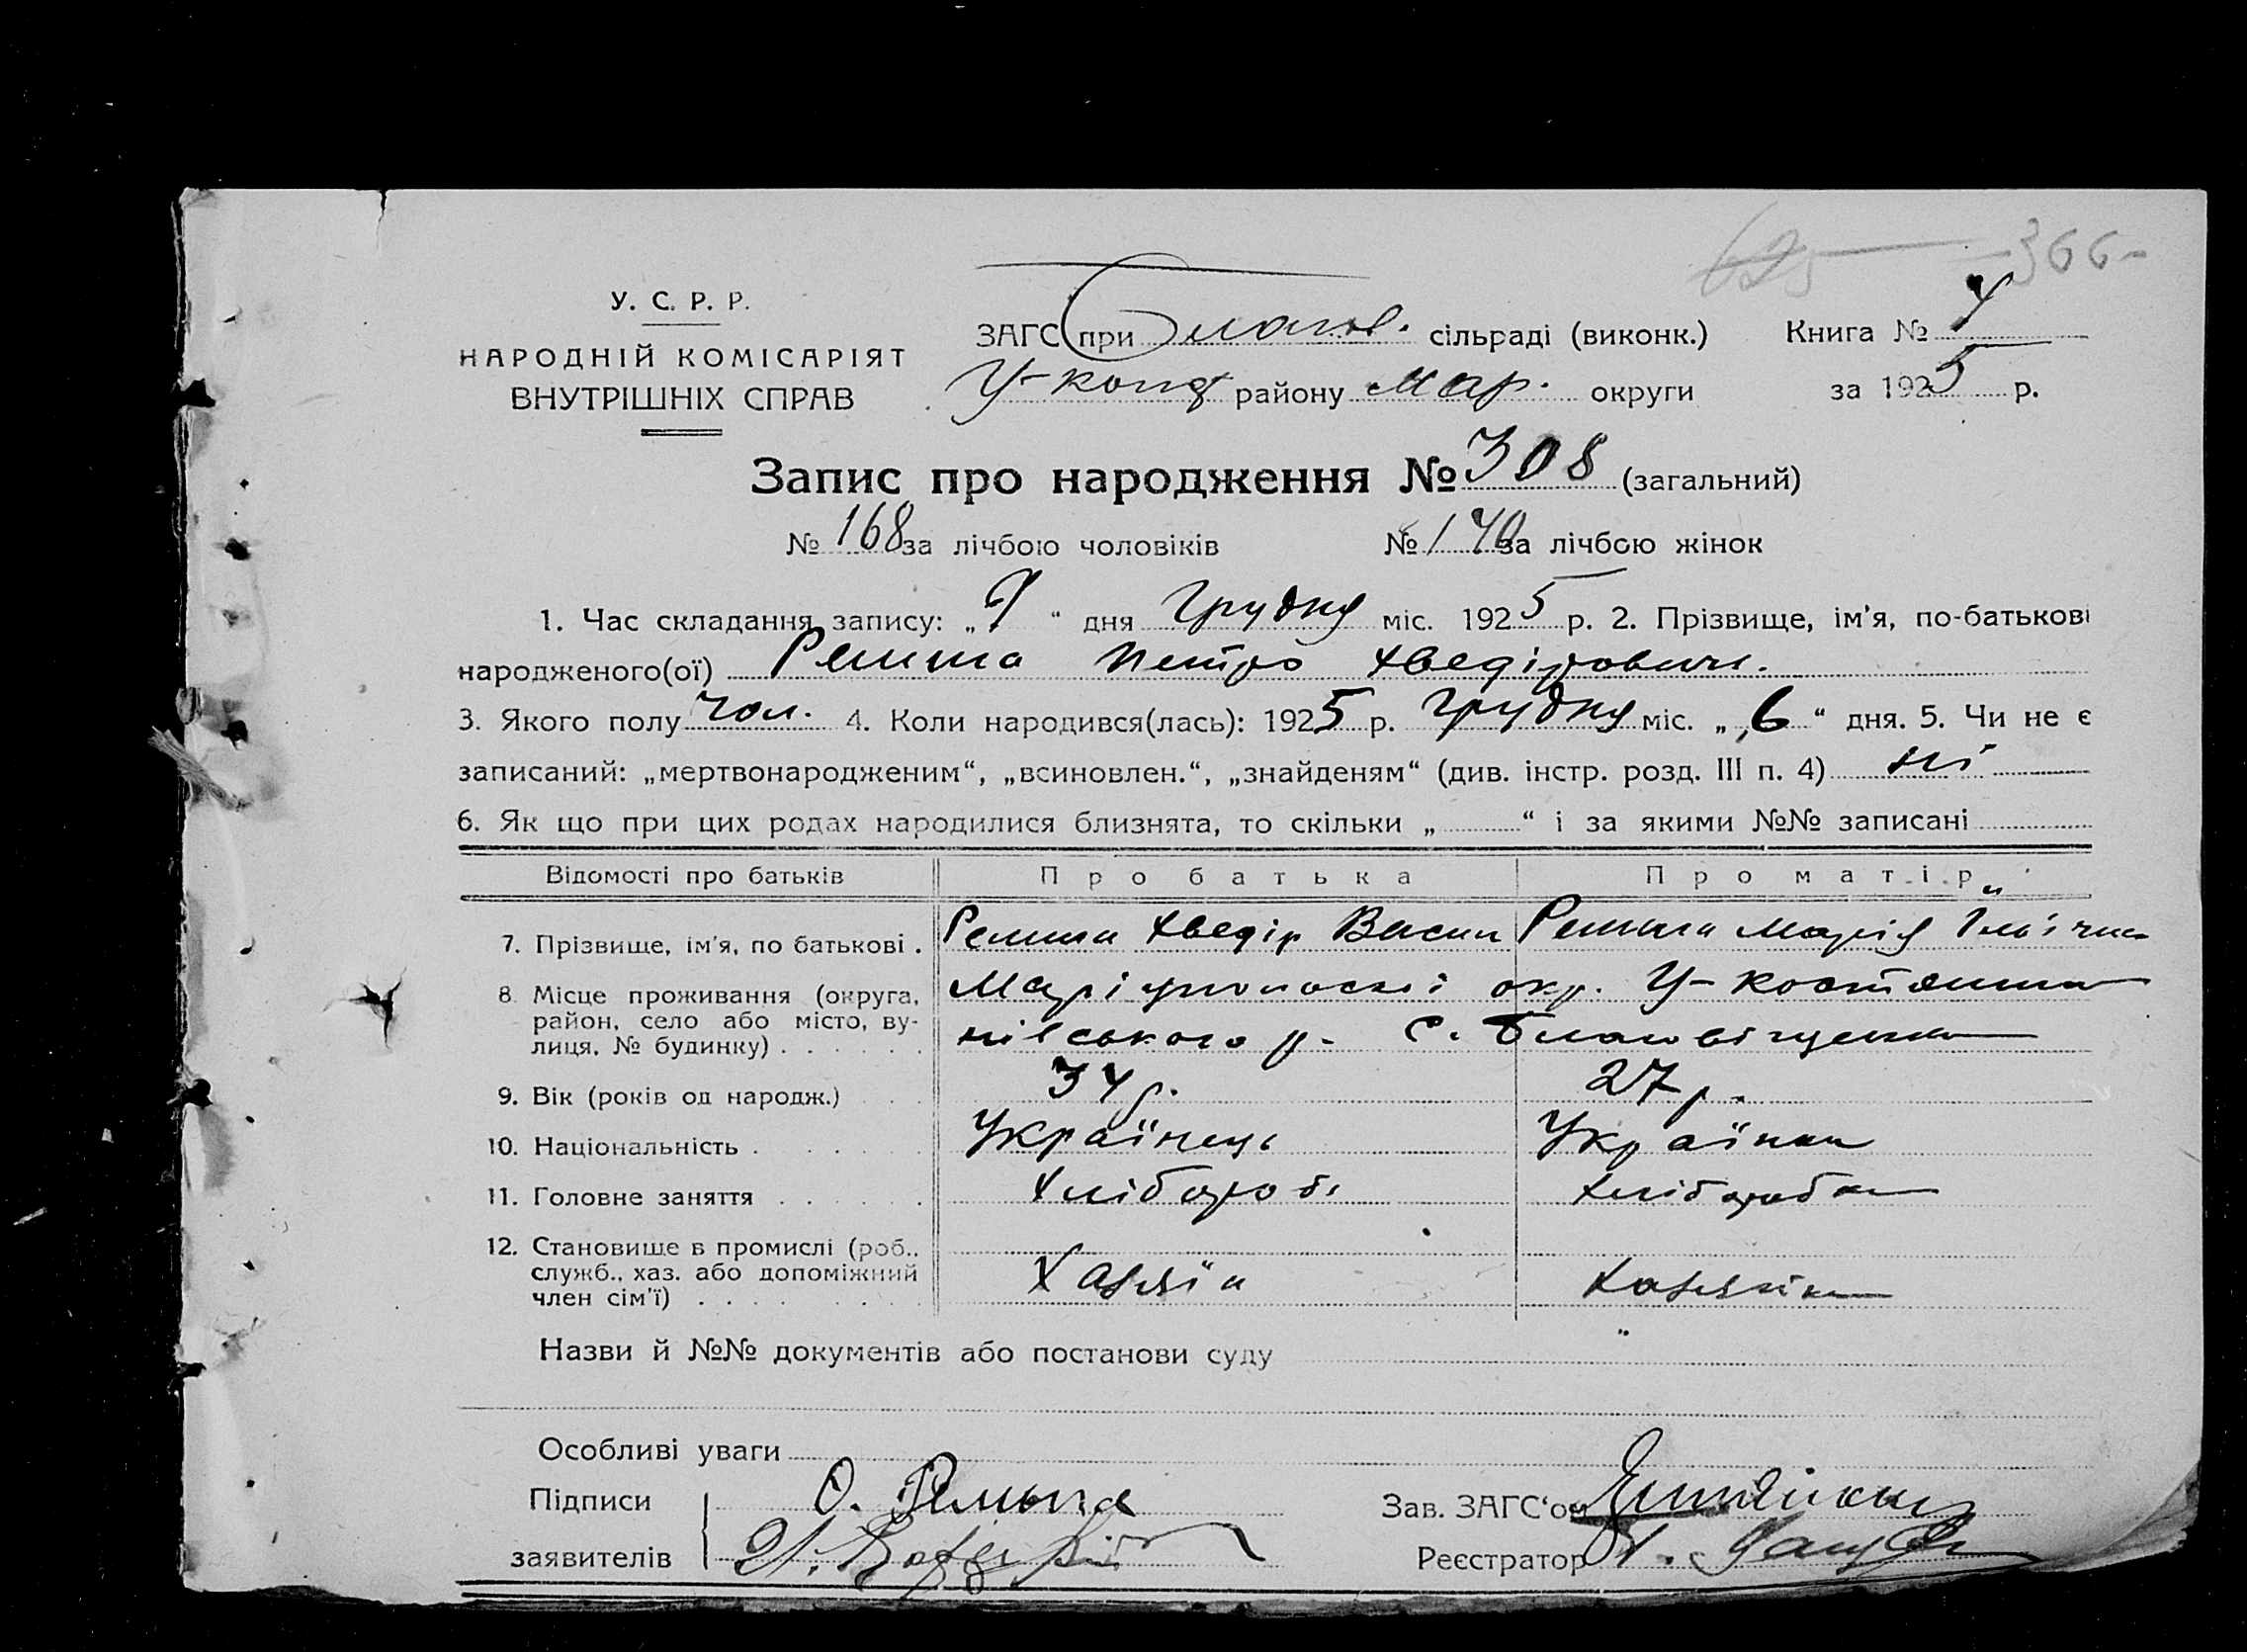 366-
У. С. Р. Р.
НАРОДНІЙ КОМІСАРІЯТ
ВНУТРІШНІХ СПРАВ
ЗАГС при Благов. сільраді (виконк.) Книга №
У-конст району Мар. округи за 1925 р.
Запис про народження № 308 (загальний)
№ 168 за лічбою чоловіків № 140 за лічбою жінок
1. Час складання запису: „ 9 “ дня грудня міс. 1925 р. 2. Прізвище, ім'я, по-батькові
народженого(ої) Петро Хведірович.
3. Якого полу чол. 4. Коли народився(лась): 1925 р. грудня міс. „ 6 “ дня. 5. Чи не є
записаний: „мертвонародженим“, „всиновлен.“, „знайденям“ (див. інстр. розд. III п. 4) ні
6. Як що при цих родах народилися близнята, то скільки „ “ і за якими №№ записані
Відомості про батьків Про батька Про матір
7. Прізвище, ім'я, по батькові . Хведір Васил Марія
8. Місце проживання (округа, район, село або місто, вулиця, № будинку) Маріупольскої окр. У-костянти
нівського р. с. Благовіщенка
9. Вік (років од народж.) 34 р. 27 р.
10. Національність . Українець Українка
11. Головне заняття Хлібороб Хліборобка
12. Становище в промислі (роб., служб., хаз. або допоміжний член сім'ї) Хазяїн Хазяйка
Назви й №№ документів або постанови суду
Особливі уваги
Підписи
заявителів
Зав. ЗАГС'ом
Реєстратор